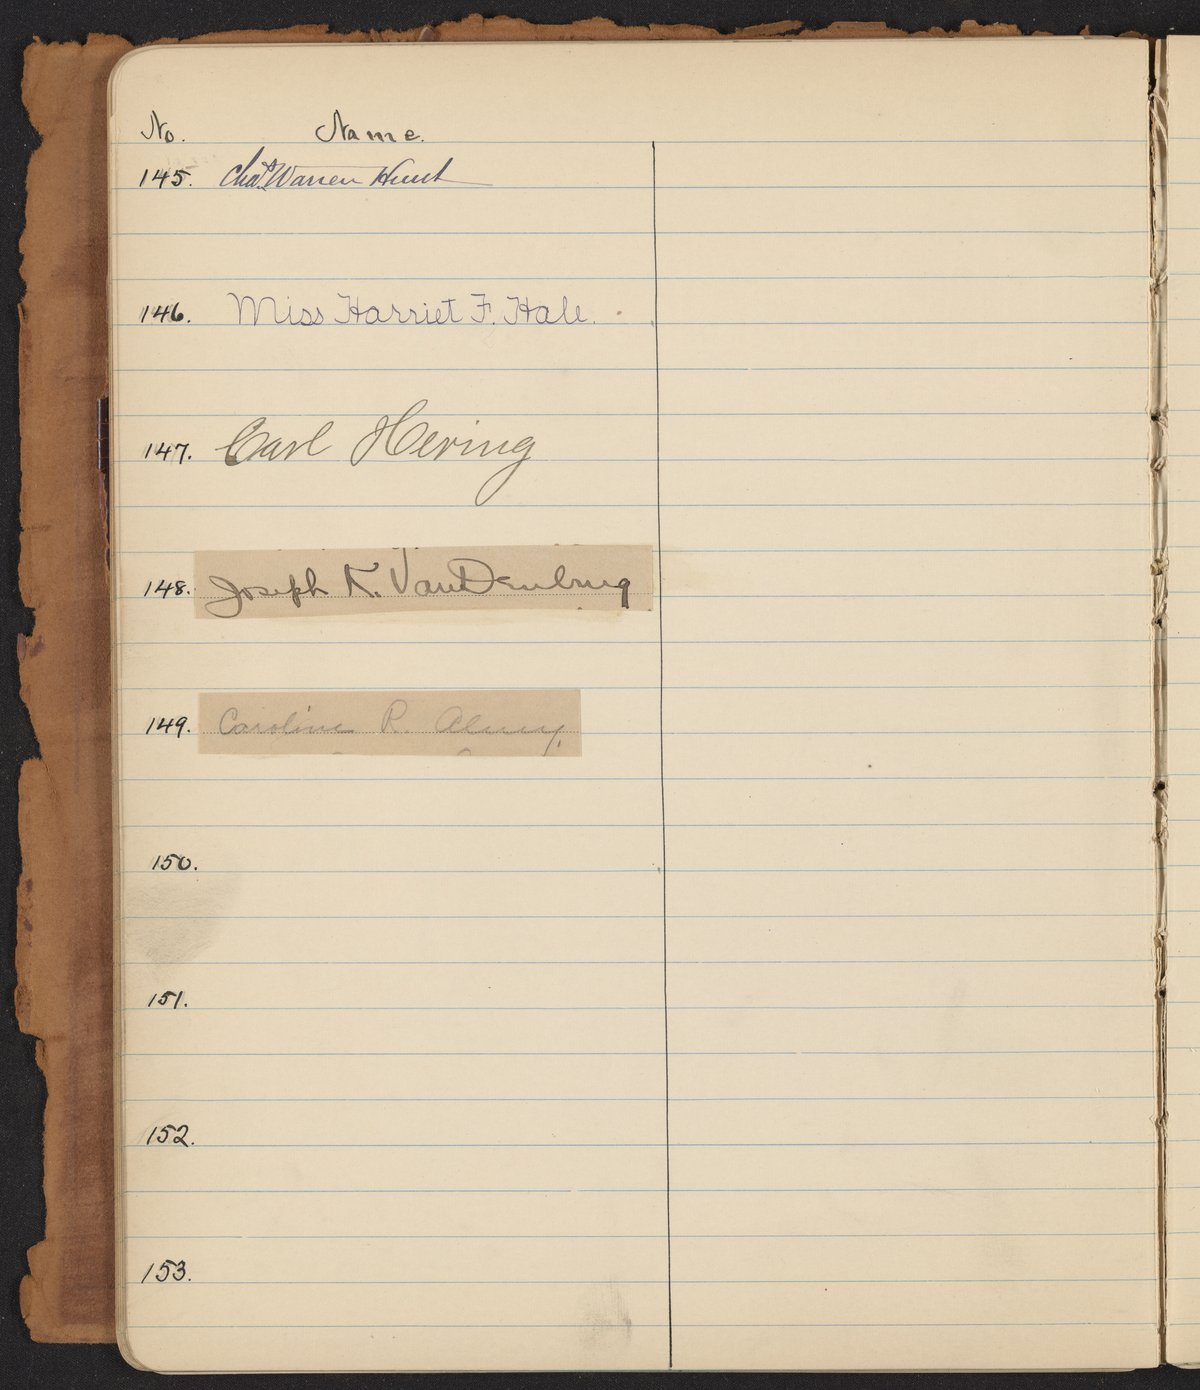 No. Name.
145. Chas. Warren Hunt
146. Miss Harriet F. Hale.
147. Carl Hering
148. Joseph K. VanDenburg
149. Caroline R. Almy.
150.
151.
152.
153.